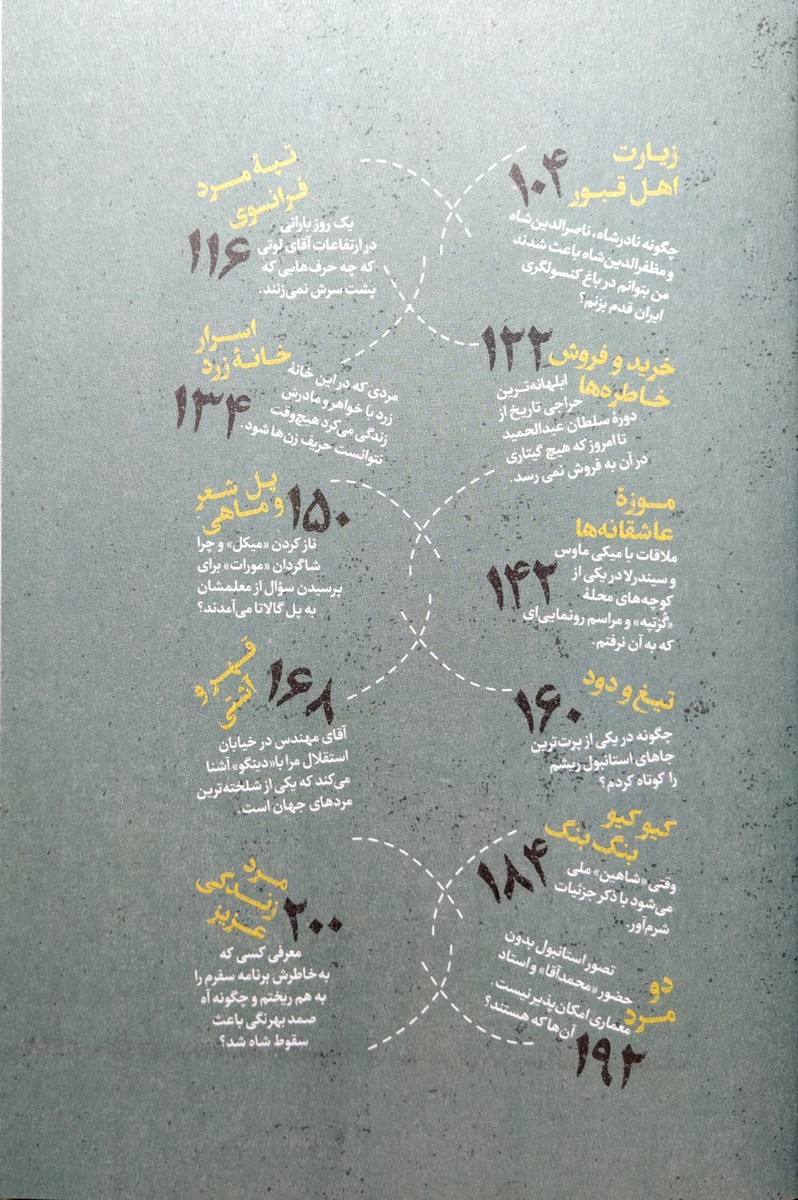 زیارت
اهل قبور
۱۰۴
چگونه نادرشاه، ناصرالدین‌شاه
و مظفرالدین‌شاه باعث شدند
من بتوانم در باغ کنسولگری
ایران قدم بزنم؟
تپهٔ مرد
فرانسوی
۱۱۶
یک روز بارانی
در ارتفاعات آقای لوتی
که چه حرف‌هایی که
پشت سرش نمی‌زنند.
خرید و فروش
خاطره‌ها
۱۲۲
ابلهانه‌ترین
حراجی تاریخ از
دورهٔ سلطان عبدالحمید
تا امروز که هیچ گیتاری
در آن به فروش نمی رسد.
اسرار
خانهٔ زرد
۱۳۴
مردی که در این خانهٔ
زرد با خواهر و مادرش
زندگی می‌کرد هیچ‌وقت
نتوانست حریف زن‌ها شود.
موزهٔ
عاشقانه‌ها
۱۴۲
ملاقات با میکی ماوس
و سیندرلا در یکی از
کوچه‌های محلهٔ
«گزتپه» و مراسم رونمایی‌ای
که به آن نرفتم.
پل شعر
و ماهی
۱۵۰
ناز کردن «میکل» و چرا
شاگردان «مورات» برای
پرسیدن سؤال از معلمشان
به پل گالاتا می‌آمدند؟
تیغ و دود
۱۶۰
چگونه در یکی از پرت‌ترین
جاهای استانبول ریشم
را کوتاه کردم؟
قهر و
آشتی
۱۶۸
آقای مهندس در خیابان
استقلال مرا با «دینگو» آشنا
می‌کند که یکی از شلخته‌ترین
مردهای جهان است.
کیو کیو
بنگ بنگ
۱۸۴
وقتی «شاهین» ملی
می‌شود با ذکر جزئیات
شرم‌آور.
دو
مرد
۱۹۲
تصور استانبول بدون
حضور «محمدآقا» و استاد
معماری امکان‌پذیر نیست.
آن‌ها که هستند؟
مرد
زندگی
عزیز
۲۰۰
معرفی کسی که
به خاطرش برنامه سفرم را
به هم ریختم و چگونه آه
صمد بهرنگی باعث
سقوط شاه شد؟